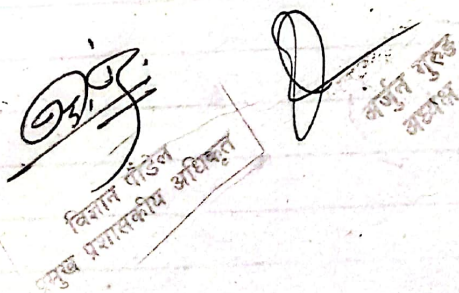 विज्ञान पौडेल
प्रमुख प्रशासकीय अधिकृत
अर्जुन गुरुङ
अध्यक्ष